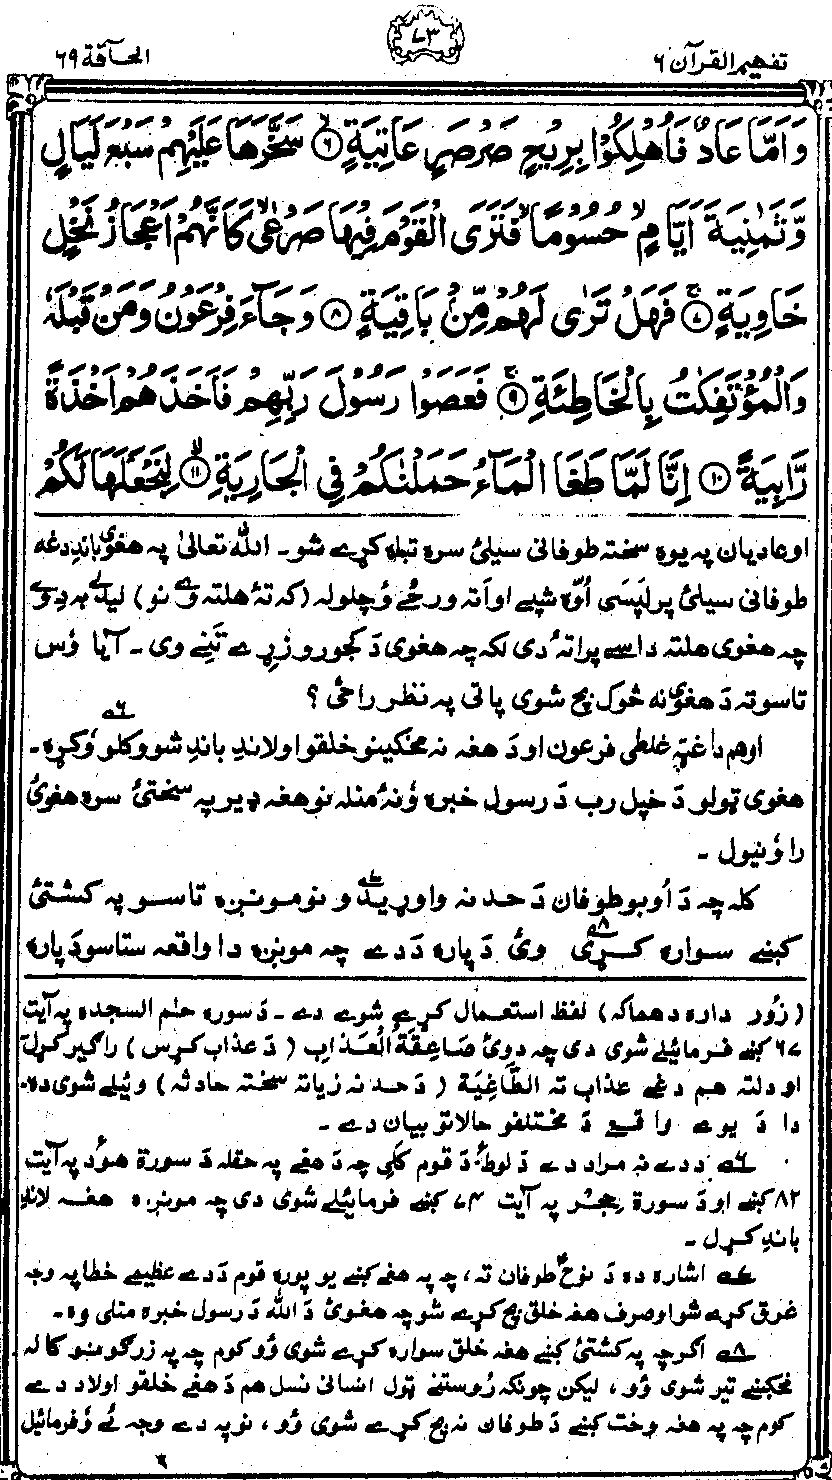 تفهیم القرآن ۶
۷۳
الحآقة ۶۹
وَاَمَّا عَادٌ فَاُهْلِكُوْا بِرِيْحٍ صَرْصَرٍ عَاتِيَةٍ ۙ﴿۶﴾ سَخَّرَهَا عَلَيْهِمْ سَبْعَ لَيَالٍ
وَّثَمٰنِيَةَ اَيَّامٍ ۙ حُسُوْمًا ۙ فَتَرَى الْقَوْمَ فِيْهَا صَرْعٰى ۙ كَاَنَّهُمْ اَعْجَازُ نَخْلٍ
خَاوِيَةٍ ۚ﴿۷﴾ فَهَلْ تَرٰى لَهُمْ مِّنْۢ بَاقِيَةٍ ﴿۸﴾ وَجَآءَ فِرْعَوْنُ وَمَنْ قَبْلَهٗ
وَالْمُؤْتَفِكٰتُ بِالْخَاطِئَةِ ۚ﴿۹﴾ فَعَصَوْا رَسُوْلَ رَبِّهِمْ فَاَخَذَهُمْ اَخْذَةً
رَّابِيَةً ﴿۱۰﴾ اِنَّا لَمَّا طَغَا الْمَآءُ حَمَلْنٰكُمْ فِي الْجَارِيَةِ ۙ﴿۱۱﴾ لِنَجْعَلَهَا لَكُمْ
او عادیان په یوه سخته طوفانی سیلۍ سره تباه کړے شو۔ الله تعالیٰ په هغوی باندِ دغه
طوفانی سیلۍ پرلپسې اُوّه شپے او اَته ورځے وُچلوله (که تهٔ هلته وے نو) لیدلے به دِ وے
چه هغوی هلته داسے پراتهٔ دی لکه چه هغوی دَ کجورو زړے تَنے وی۔ آیا وُس
تاسو ته دَ هغوی نه څوک بچ شوی پاتی په نظر راځی ؟
او هم دا غټه غلطی فرعون او دَ هغه نه مخکینو خلقو او لاندِ باندِ شوو کلو وُکړه۶۔
هغوی ټولو دَ خپل رب دَ رسول خبره وُنهٔ منله نو هغه ډیر په سختۍ سره هغوی
را وُنیول۔
کله چه دَ اُوبو طوفان دَ حد نه واوړیدو۷ نو مونږه تاسو په کشتۍ
کښے سواره کړی۸ وئ دَ پاره دَدے چه مونږه دا واقعه ستاسو دَپاره
(زُور داره دهماکه) لفظ استعمال کړے شوے دے۔ دَ سوره حٰم السجده په آیت
۷۶ کښے فرمائیلے شوی دی چه دوئ صَاعِقَةُ الْعَذَابِ (دَ عذاب کړس) راگیر کړل
او دلته هم دغے عذاب ته الطَّاغِيَة (دَ حد نه زیاته سخته حادثه) وئیلے شوی ده۔
دا دَ یوے واقعے دَ مختلفو حالاتو بیان دے۔
۶ دَدے نه مراد دے دَ لوط ؑ دَ قوم کلی چه دَ هغے په حقله دَ سورة هُود په آیت
۸۲ کښے او دَ سورة حِجْر په آیت ۷۴ کښے فرمائیلے شوی دی چه مونږه هغه لاندِ
باندِ کړل۔
۷ اشاره ده دَ نوح ؑ طوفان ته، چه په هغے کښے یو پوره قوم دَدے عظیمے خطا په وجه
غرق کړے شو او صرف هغه خلق بچ کړے شو چه هغوئ دَ الله دَ رسول خبره منلی وه۔
۸ اگرچه په کشتۍ کښے هغه خلق سواره کړے شوی وُو کوم چه په زرگونو کاله
مخکښے تیر شوی وُو، لیکن چونکه رُوستنے ټول انسانی نسل هم دَ هغے خلقو اولاد دے
کوم چه په هغه وخت کښے دَ طوفان نه بچ کړے شوی وُو، نو په دے وجه ئے وُفرمائیل